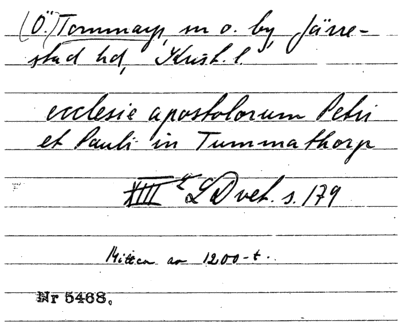 (Ö.) Tommarp, sn o. by, Järre-
stad hd, Krist. l.
ecclesie apostolorum Petri
et Pauli in Tummathorp
XIII LDvet. s. 179
Mitten av 1200-t.
Nr 5468.